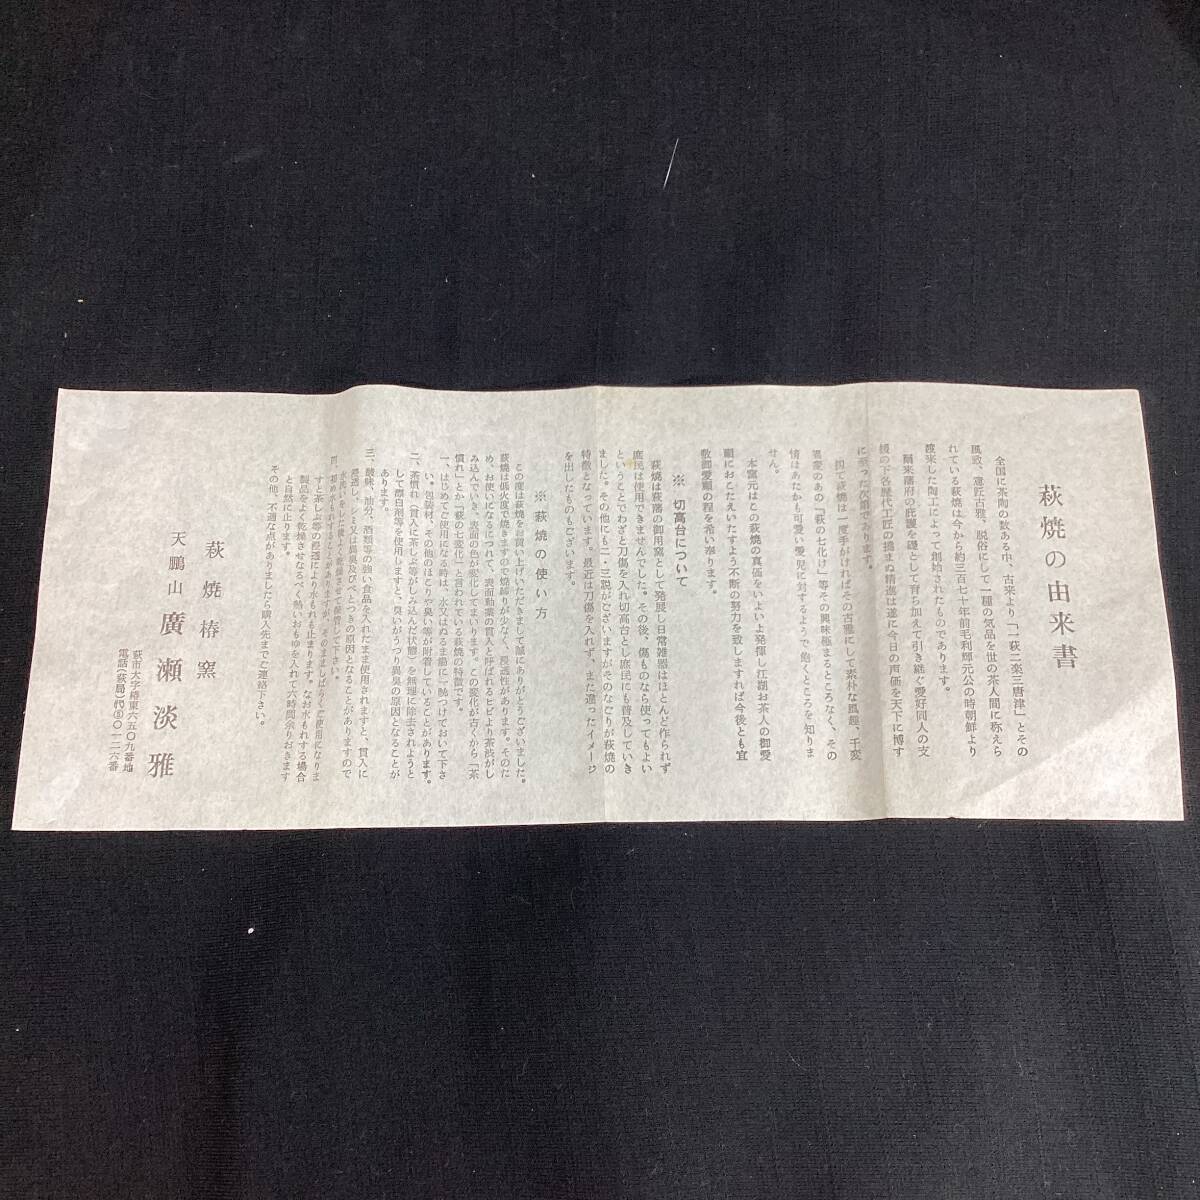 萩焼の由来書
全国に茶陶の数ある中、古来より「一萩二楽三唐津」とその
風致、還匠古雅、脱俗にして一種の気品を世の茶人間に称えら
れている萩焼は今から約三百七十年前毛利輝元公の時朝鮮より
渡来した陶工によって創始されたものであります。
爾来藩府の庇護を礎として育ち加えて引き継ぐ愛好同人の支
援の下各歴代工匠の撓まぬ精進は遂に今日の声価を天下に博す
に至った次第であります。
因で萩焼は一度手がければその古雅にして素朴な風趣、千変
万変のあの「萩の七化け」等その興味極まるところなく、その
情はあたかも可愛い愛児に対するようで飽くところを知りま
せん。
本窯元はこの萩焼の真価をいよいよ発揮し江湖お茶人の御愛
顧におこたえいたすよう不断の努力を致しますれば今後とも宜
敷御愛顧の程を希い奉ります。
※ 切高台について
萩焼は萩藩の御用窯として発展し日常雑器はほとんど作られず
庶民は使用できませんでした。その後、傷ものなら使ってもよい
ということでわざと刀傷を入れ切高台とし庶民にも普及していき
ました。その他にも二・三説がございますがそのなごりが萩焼の
特徴となっています。最近は刀傷を入れず、また違ったイメージ
を出したものもございます。
※ 萩焼の使い方
この度は萩焼をお買い上げいただきまして誠にありがとうございました。
萩焼は低火度で焼きますので焼締りが少なく、浸透性があります。そのた
め、お使いになるにつれて、表面釉薬の貫入と呼ばれるヒビより茶渋がし
み込んでいき、表面の色が変化してまいります。この変化が古くから「茶
慣れ」とか「萩の七変化」と言われている萩焼の特徴です。
一、はじめてご使用になる時は、水又はぬるま湯に一晩つけておいて下さ
い。包装材、その他のほこりや臭い等が附着していることがあります。
二、茶慣れ(貫入に茶しぶ等がしみ込んだ状態)を無理に除去されようと
して漂白剤等を使用しますと、臭いがうつり異臭の原因となることが
あります。
三、酸味、油分、酒類等の強い食品を入れたまま使用されますと、貫入に
浸透し、シミ又は異臭及びべとつきの原因となることがありますので
水洗いをした後よく乾燥させて保管して下さい。
四、初め水もれすることがありますが、そのまましばらくご使用になりま
すと茶しぶ等の浸透により水もれも止まります。なお水もれする場合
製品をよく乾燥させなるべく熱いおもゆを入れて六時間余りおきます
と自然に止ります。
その他、不適な点がありましたら購入先までご連絡下さい。
萩焼椿窯
天鵬山 廣瀬淡雅
萩市大字椿東六五〇九番地
電話(萩局)代⑤〇一二六番